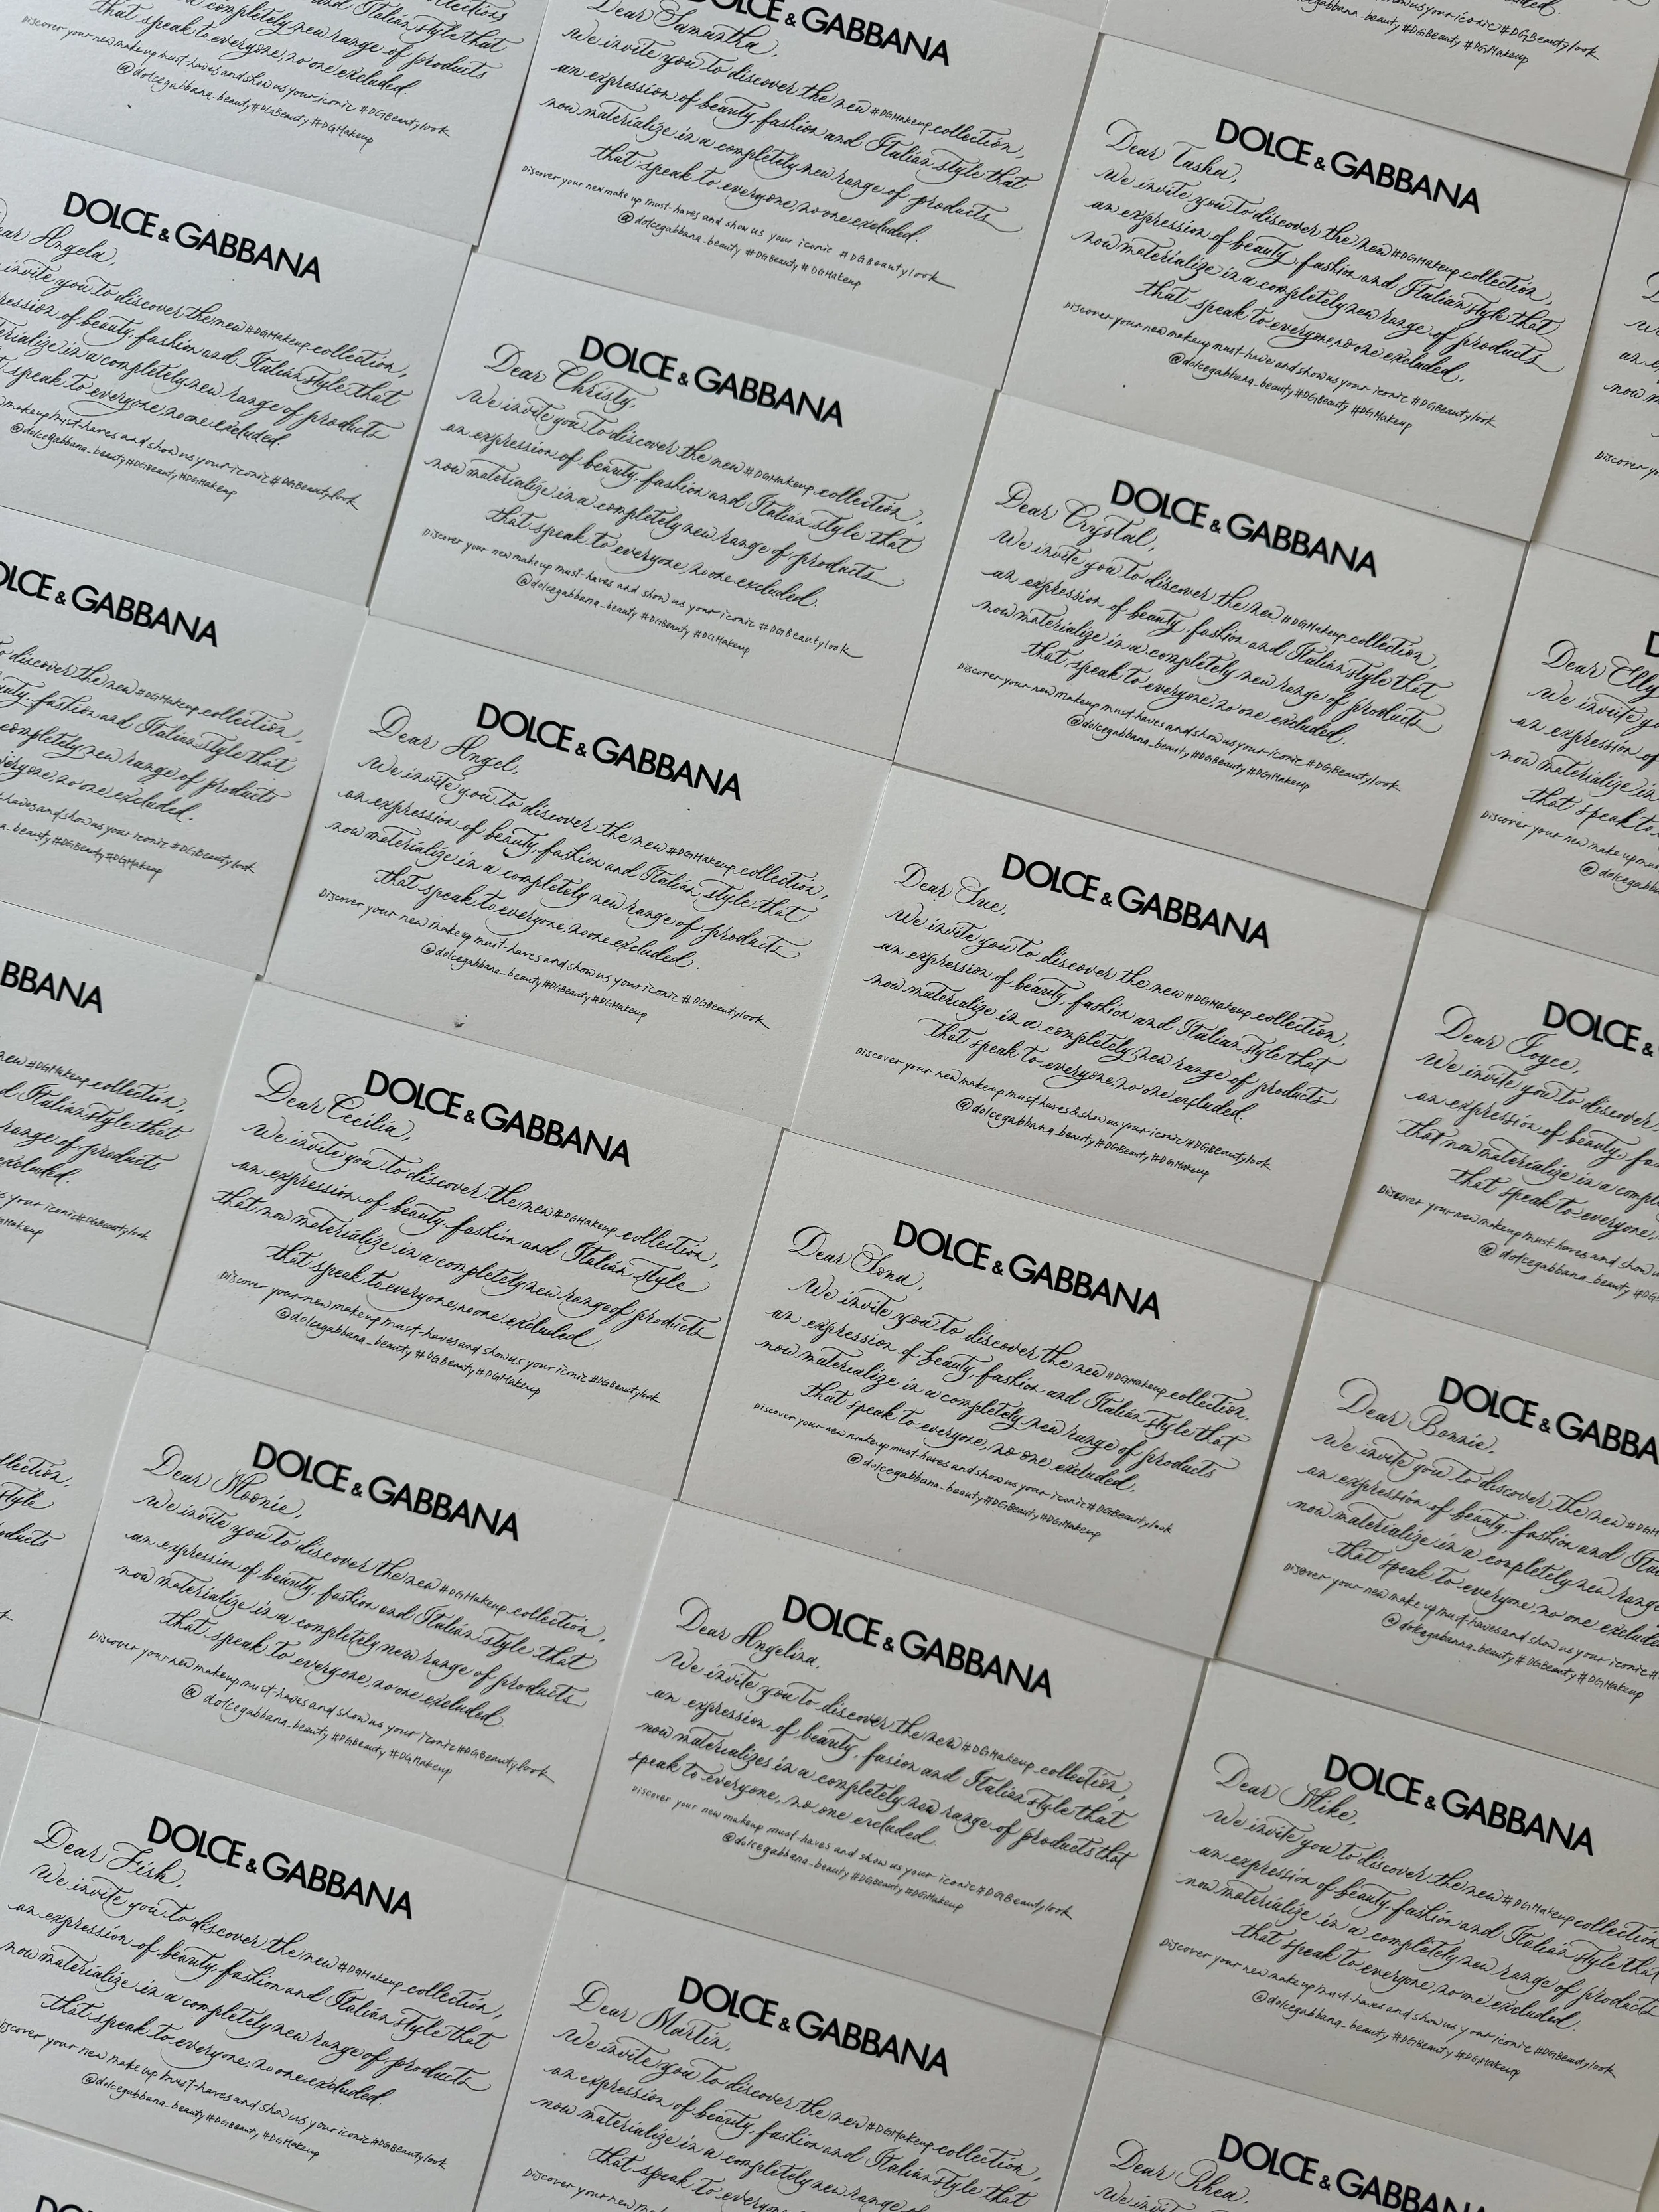 and Italian style that
a completely new range of products
that speak to everyone, no one excluded.
Discover your new make up must-haves and show us your iconic #DGBeautylook
@dolcegabbana_beauty #DGBeauty #DGMakeup
DOLCE & GABBANA
Dear Samantha,
We invite you to discover the new #DGMakeup collection,
an expression of beauty, fashion and Italian style that
now materialize in a completely new range of products
that speak to everyone, no one excluded.
Discover your new make up must-haves and show us your iconic #DGBeautylook
@dolcegabbana_beauty #DGBeauty #DGMakeup
show us your iconic #DGBeautylook
#DGBeauty #DGMakeup
DOLCE & GABBANA
Dear Tasha,
We invite you to discover the new #DGMakeup collection,
an expression of beauty, fashion and Italian style that
now materialize in a completely new range of products
that speak to everyone, no one excluded.
Discover your new makeup must-have and show us your iconic #DGBeautylook
@dolcegabbana_beauty #DGBeauty #DGMakeup
DOLCE & GABBANA
Angela,
invite you to discover the new #DGMakeup collection,
of beauty, fashion and Italian style that
in a completely new range of products
speak to everyone, no one excluded.
makeup must-haves and show us your iconic #DGBeautylook
@dolcegabbana_beauty #DGBeauty #DGMakeup
DOLCE & GABBANA
Dear Christy,
We invite you to discover the new #DGMakeup collection,
an expression of beauty, fashion and Italian style that
now materialize in a completely new range of products
that speak to everyone, no one excluded.
Discover your new make up must-haves and show us your iconic #DGBeautylook
@dolcegabbana_beauty #DGBeauty #DGMakeup
DOLCE & GABBANA
Dear Crystal,
We invite you to discover the new #DGMakeup collection,
an expression of beauty, fashion and Italian style that
now materialize in a completely new range of products
that speak to everyone, no one excluded.
Discover your new makeup must-haves and show us your iconic #DGBeautylook
@dolcegabbana_beauty #DGBeauty #DGMakeup
Dear Elly
We invite
an expression of
now materialize in
that speak to
Discover your new make up
& GABBANA
discover the new #DGMakeup collection,
fashion and Italian style that
completely new range of products
everyone, no one excluded.
and show us your iconic #DGBeautylook
#DGBeauty #DGMakeup
DOLCE & GABBANA
Dear Angel,
We invite you to discover the new #DGMakeup collection,
an expression of beauty, fashion and Italian style that
now materialize in a completely new range of products
that speak to everyone, no one excluded.
Discover your new makeup must-haves and show us your iconic #DGBeautylook
@dolcegabbana_beauty #DGBeauty #DGMakeup
DOLCE & GABBANA
Dear Sue,
We invite you to discover the new #DGMakeup collection,
an expression of beauty, fashion and Italian style that
now materialize in a completely new range of products
that speak to everyone, no one excluded.
Discover your new makeup must-haves & show us your iconic #DGBeautylook
@dolcegabbana_beauty #DGBeauty #DGMakeup
DOLCE &
Dear Joyce,
We invite you to discover
an expression of beauty,
that now materialize in a
that speak to everyone,
Discover your new makeup must-haves and show
@dolcegabbana_beauty
#DGMakeup collection,
Italian style that
range of products
excluded.
your iconic #DGBeautylook
DOLCE & GABBANA
Dear Cecilia,
We invite you to discover the new #DGMakeup collection,
an expression of beauty, fashion and Italian style
that now materialize in a completely new range of products
that speak to everyone, no one excluded.
Discover your new makeup must-haves and show us your iconic #DGBeautylook
@dolcegabbana_beauty #DGBeauty #DGMakeup
DOLCE & GABBANA
Dear Sona,
We invite you to discover the new #DGMakeup collection,
an expression of beauty, fashion and Italian style that
now materialize in a completely new range of products
that speak to everyone, no one excluded.
Discover your new makeup must-haves and show us your iconic #DGBeautylook
@dolcegabbana_beauty #DGBeauty #DGMakeup
DOLCE &
Dear Bonnie,
We invite you to discover the new
an expression of beauty, fashion and
now materialize in a completely new
that speak to everyone, no one
Discover your new make up must-haves and show us your iconic
@dolcegabanna_beauty #DGBeauty #DGMakeup
DOLCE & GABBANA
Dear Moonie,
We invite you to discover the new #DGMakeup collection,
an expression of beauty, fashion and Italian style that
now materialize in a completely new range of products
that speak to everyone, no one excluded.
Discover your new makeup must-haves and show us your iconic #DGBeautylook
@dolcegabbana_beauty #DGBeauty #DGMakeup
DOLCE & GABBANA
Dear Angelina,
We invite you to discover the new #DGMakeup collection,
an expression of beauty, fasion and Italian style that
now materializes in a completely new range of products that
speak to everyone, no one excluded.
Discover your new makeup must-haves and show us your iconic #DGBeautylook
@dolcegabbana_beauty #DGBeauty #DGMakeup
DOLCE & GABBANA
Dear Mike,
We invite you to discover the new #DGMakeup collection
an expression of beauty, fashion and Italian style that
now materialize in a completely new range of products
that speak to everyone, no one excluded.
Discover your new makeup must-haves and show us your iconic #DGBeautylook
@dolcegabbana_beauty #DGBeauty #DGMakeup
DOLCE & GABBANA
Dear Fish,
We invite you to discover the new #DGMakeup collection,
an expression of beauty, fashion and Italian style that
now materialize in a completely new range of products
that speak to everyone, no one excluded.
Discover your new make up must-haves and show us your iconic #DGBeautylook
@dolcegabbana_beauty #DGBeauty #DGMakeup
DOLCE & GABBANA
Dear Martin,
We invite you to discover the new #DGMakeup collection,
an expression of beauty, fashion and Italian style that
now materialize in a completely new range of products
that speak to everyone,
Discover your new
DOLCE & GABBANA
Dear Rhea,
We invite